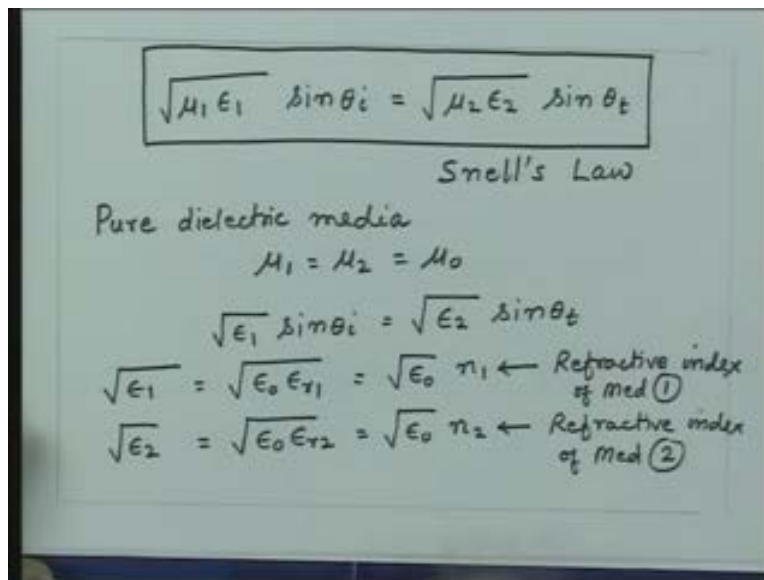 √μ₁ε₁ sin θi = √μ₂ε₂ sin θt
Snell's Law
Pure dielectric media
μ₁ = μ₂ = μ₀
√ε₁ sin θi = √ε₂ sin θt
√ε₁ = √ε₀ εr₁ = √ε₀ n₁ ← Refractive index
of Med ①
√ε₂ = √ε₀ εr₂ = √ε₀ n₂ ← Refractive index
of Med ②